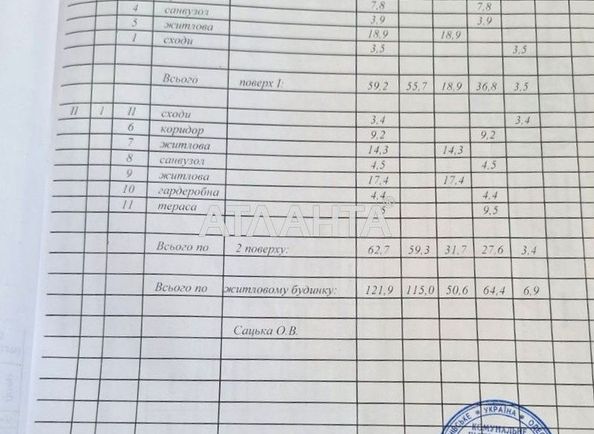 4 санвузол 7,8 7,8
5 житлова 3,9 3,9
I сходи 18,9 18,9
3,5 3,5
Всього поверх I: 59,2 55,7 18,9 36,8 3,5
II I II сходи 3,4 3,4
6 коридор 9,2 9,2
7 житлова 14,3 14,3
8 санвузол 4,5 4,5
9 житлова 17,4 17,4
10 гардеробна 4,4 4,4
11 тераса 9,5
АТЛАНТА
Всього по 2 поверху: 62,7 59,3 31,7 27,6 3,4
Всього по житловому будинку: 121,9 115,0 50,6 64,4 6,9
Сацька О.В.
УКРАЇНА
КОМУНАЛЬНЕ